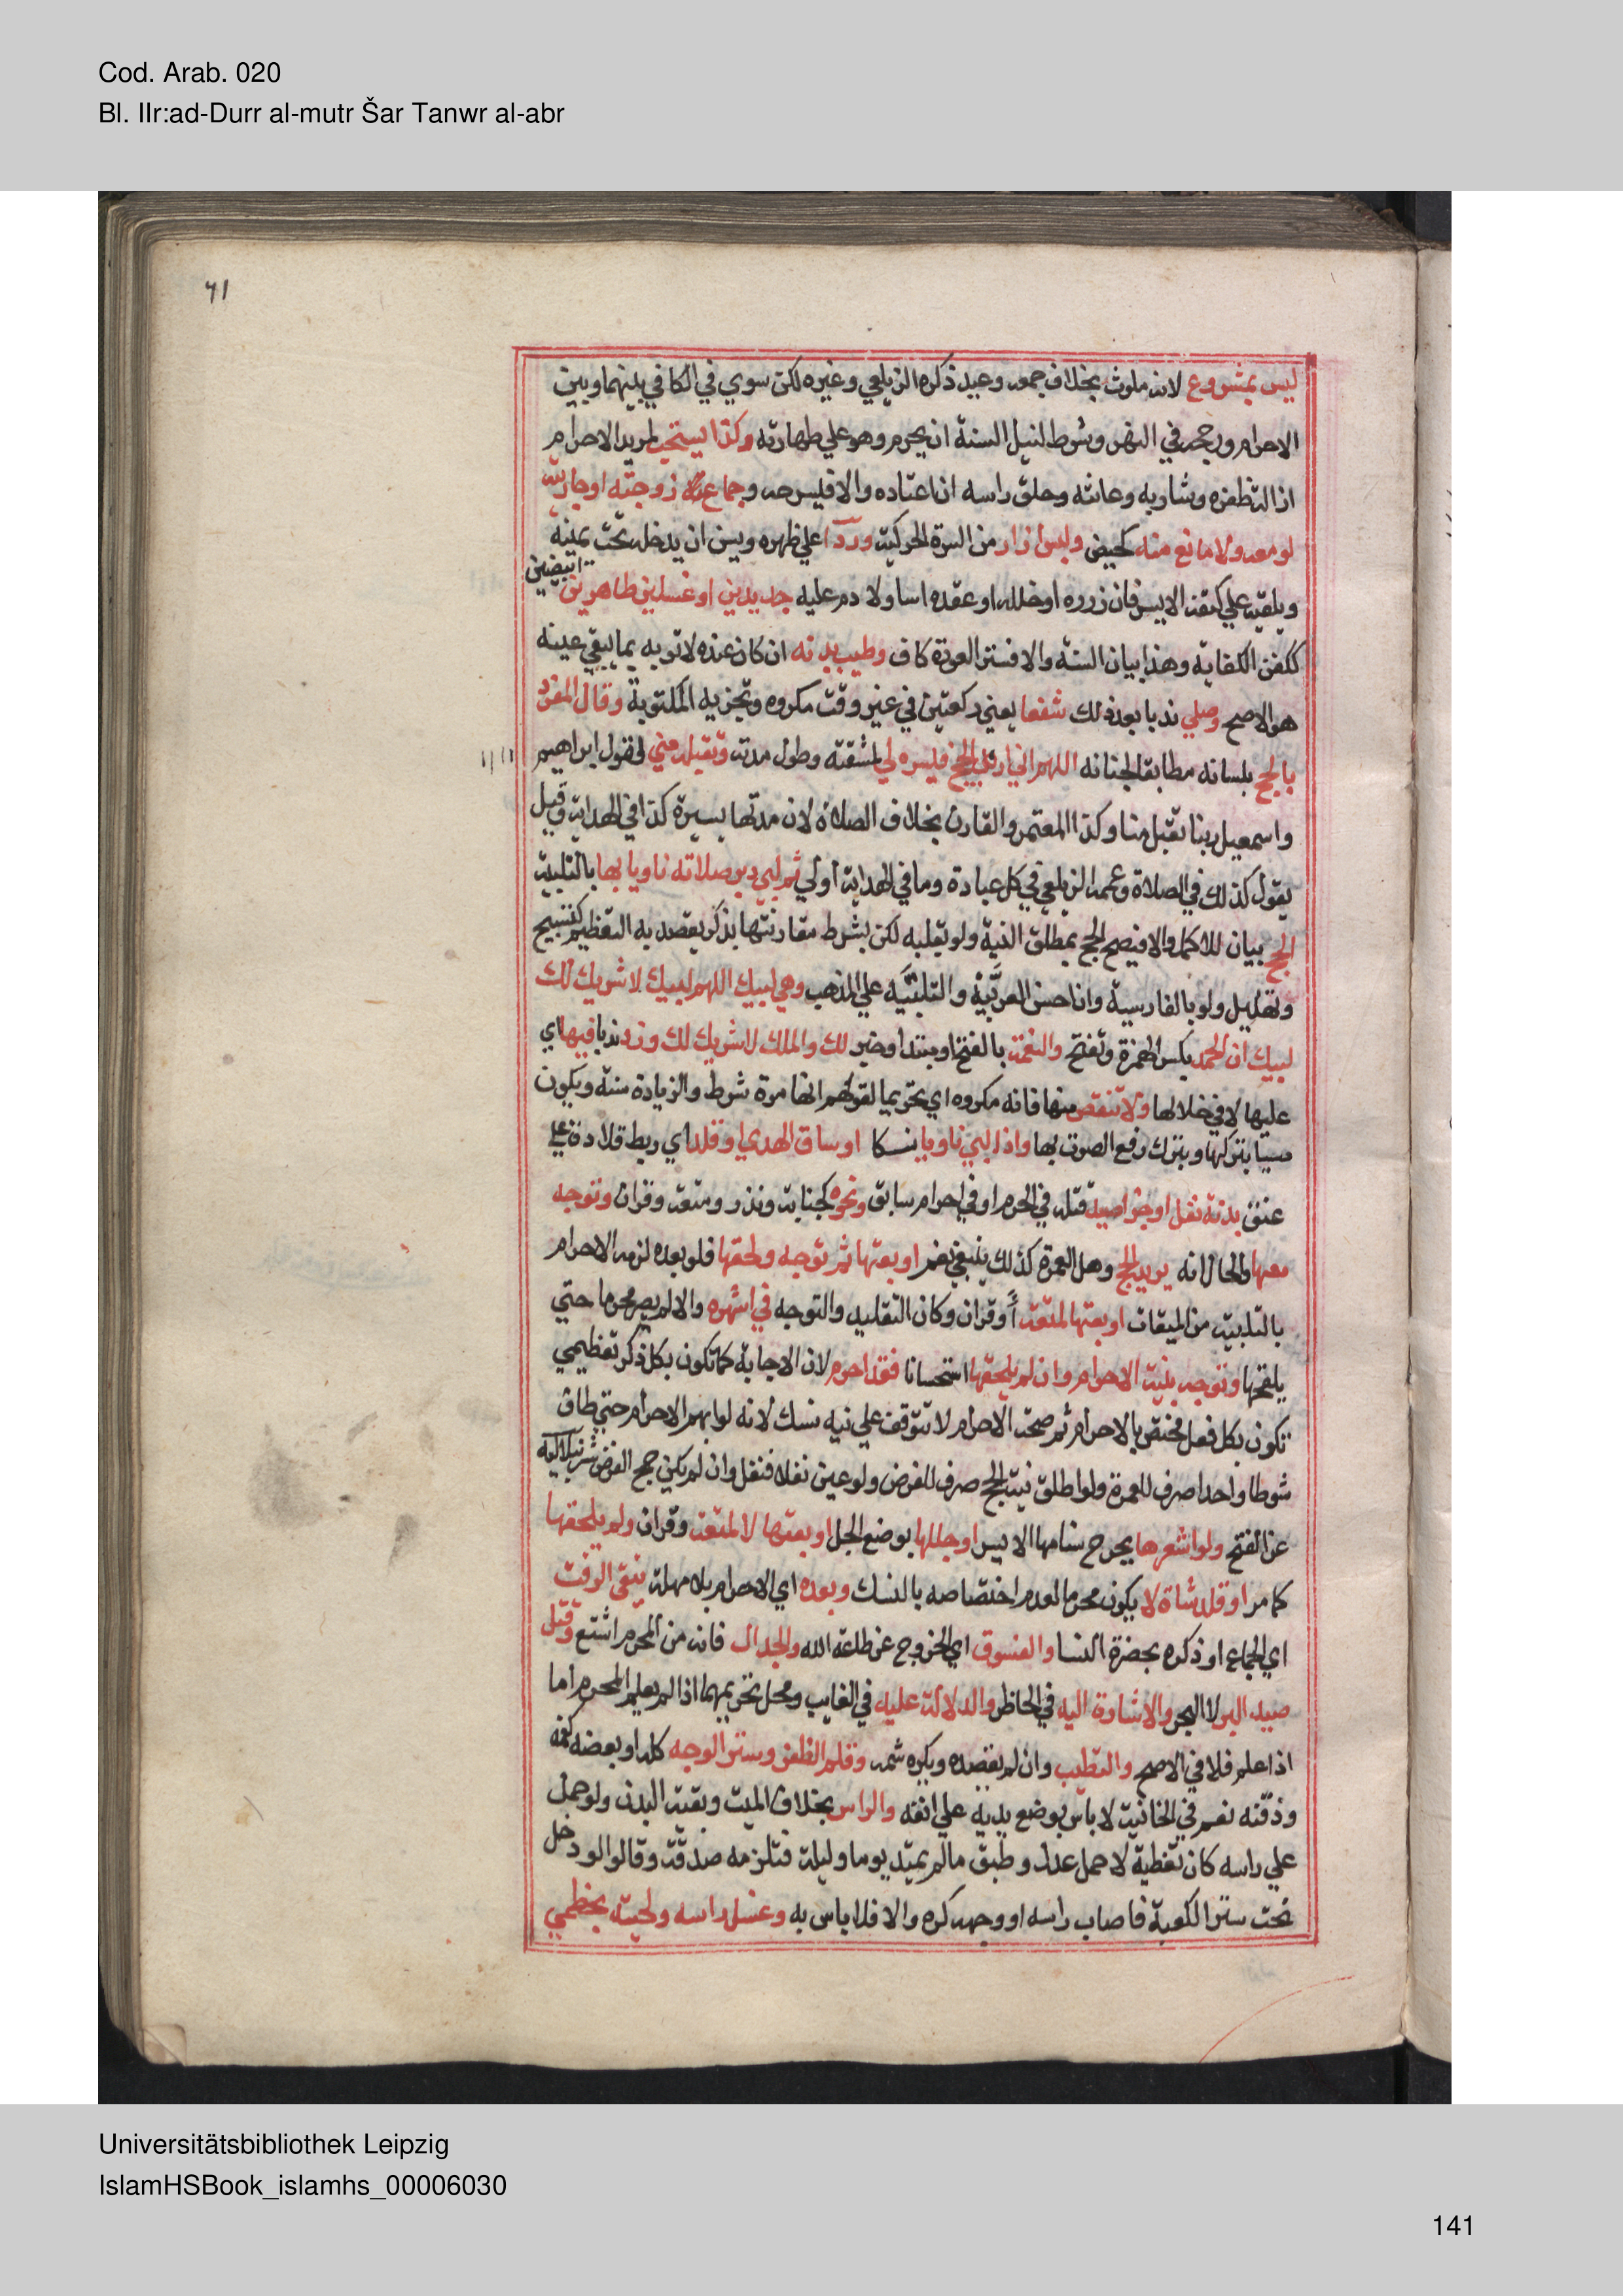 Cod. Arab. 020
Bl. IIr:ad-Durr al-mutr Šar Tanwr al-abr
٦١
ليس بمشروع لانه ملوث بخلاف جمعه وعيد ذكره الزيلعي وغيره لكن سوي في الكافي بينهما وبين
الاحرام ورجحه في النهر وشرط لنيل السنة ان يحرم وهو علي طهارته وكذا يستحب لمريد الاحرام
ازالة ظفره وشاربه وعانته وحلق راسه ان اعتاده والا فليسرحه وجماع زوجته او جاريته
لو معه ولا مانع منه كحيض ولبس ازار من السرة الي الركبة وردآ علي ظهره ويسن ان يدخله تحت يمينه
ويلقيه علي كتفه الايسر فان زرره او خلله او عقده اسا ولا دم عليه جديدين او غسيلين طاهرين ابيضين
ككفن الكفاية وهذا بيان السنة والا فستر العورة كاف وطيب بدنه ان كان عنده لا ثوبه بما يبقي عينه
هو الاصح وصلي ندبا بعد ذلك شفعا يعني ركعتين في غير وقت مكروه وتجزيه المكتوبة وقال المفرد
بالحج بلسانه مطابقا لجنانه اللهم اني اريد الحج فيسره لي لمشقته وطول مدته وتقبله مني لقول ابراهيم
واسمعيل ربنا تقبل منا وكذا المعتمر والقارن بخلاف الصلاة لان مدتها يسيرة كذا في الهداية وقيل
يقول كذلك في الصلاة وعممه الزيلعي في كل عبادة وما في الهداية اولي ثم لبي دبر صلاته ناويا بها بالتلبية
الحج بيان للاكمل والا فيصح الحج بمطلق النية ولو بقلبه لكن بشرط مقارنتها بذكر يقصد به التعظيم كتسبيح
وتهليل ولو بالفارسية وان احسن العربية والتلبية علي المذهب وهي لبيك اللهم لبيك لا شريك لك
لبيك ان الحمد بكسر الهمزة وتفتح والنعمة بالفتح او مبتدا وخبر لك والملك لا شريك لك وزد ندبا فيها اي
عليها لا في خلالها ولا تنقص منها فانه مكروه اي تحريما لقولهم انها مرة شرط والزيادة سنة ويكون
مسيا بتركها وبترك رفع الصوت بها واذا لبي ناويا نسكا او ساق الهدي او قلد اي ربط قلادة علي
عنق بدنة نفل او جزا صيد قتله في الحرم او في احرام سابق ونحوه كجناية ونذر ومتعة وقران وتوجه
معها والحال انه يريد الحج وهل العمرة كذلك ينبغي نعم او بعثها ثم توجه ولحقها فلو بعده لزمه الاحرام
بالتلبية من الميقات او بعثها لمتعة أو قران وكان التقليد والتوجه في اشهره والا لم يصر محرما حتي
يلحقها وتوجه بنية الاحرام وان لم يلحقها استحسانا فقد احرم لان الاجابة كما تكون بكل ذكر تعظيمي
تكون بكل فعل مختص بالاحرام ثم صحة الاحرام لا تتوقف علي نية نسك لانه لو ابهم الاحرام حتي طاف
شوطا واحدا صرف للعمرة ولو اطلق نية الحج صرف للفرض ولو عين نفلا فنفل وان لم يكن حج الفرض شرنبلالية
عن الفتح ولو اشعرها بجرح سنامها الايسر او جللها بوضع الجل او بعثها لا لمتعة وقران ولم يلحقها
كما مر او قلد شاة لا يكون محرما لعدم اختصاصه بالنسك وبعده اي الاحرام بلا مهلة يتقي الرفث
اي الجماع او ذكره بحضرة النسا والفسوق اي الخروج عن طاعة الله والجدال فانه من المحرم اشنع وقتل
صيد البر لا البحر والاشارة اليه في الحاظر والدلالة عليه في الغايب ومحل تحريمهما اذا لم يعلم المحرم اما
اذا علم فلا في الاصح والتطيب وان لم يقصده ويكره شمه وقلم الظفر وستر الوجه كله او بعضه كفمه
وذقنه نعم في الخانية لا باس بوضع يديه علي انفه والراس بخلاف الميت وبقية البدن ولو حمل
علي راسه كان تغطية لا حمل عدل وطبق ما لم يمتد يوما وليلة فتلزمه صدقة وقالوا لو دخل
تحت ستر الكعبة فاصاب راسه او وجهه كره والا فلا باس به وغسل راسه ولحيته بخطمي
Universitätsbibliothek Leipzig
IslamHSBook_islamhs_00006030
141